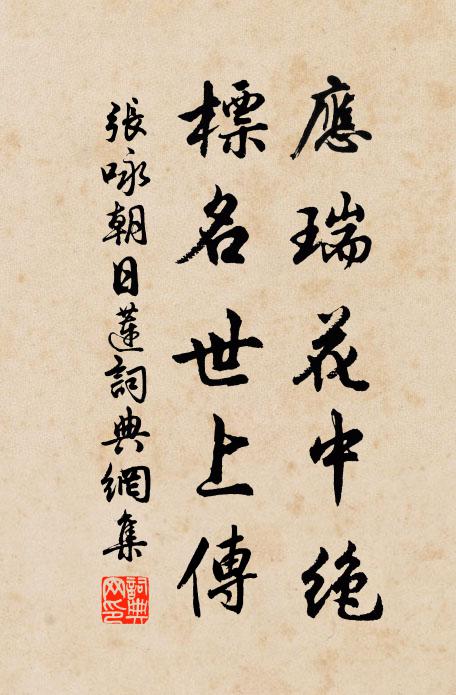 應瑞花中絶
標名世上傳
張咏朝日蓮詞典網集
詞典网印